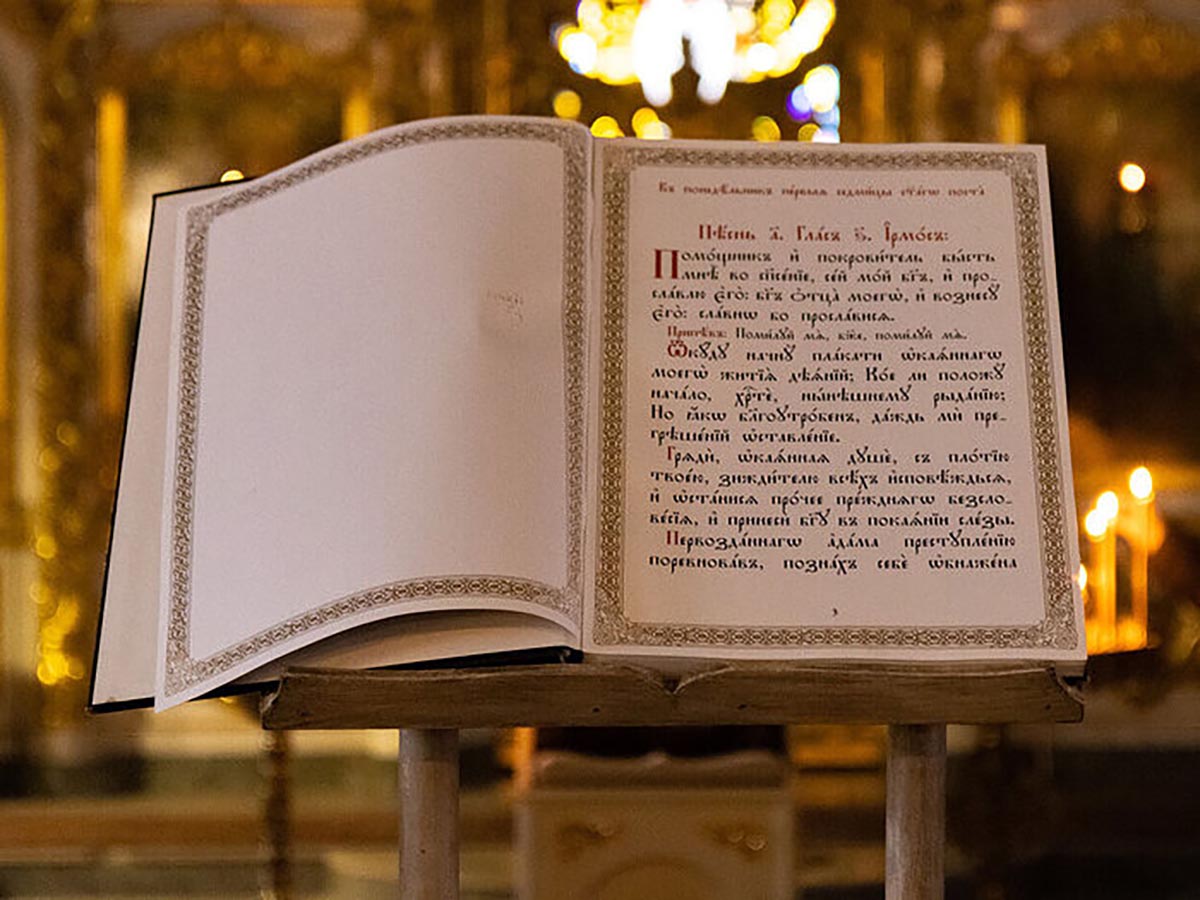 Въ понедѣ́льникъ пе́рвыѧ седми́цы ст҃а́гѡ поста̀
Пѣ́снь а҃. Гла́съ ѕ҃. І҆рмо́съ:
Помо́щникъ и҆ покрови́тель бы́сть
мнѣ̀ во сп҃се́нїе, се́й мо́й бг҃ъ, и҆ про-
сла́влю є҆го̀: бг҃ъ ѻ҆тца̀ моегѡ̀, и҆ вознесꙋ̀
є҆го̀: сла́внѡ бо просла́висѧ.
Припѣ́въ: Поми́лꙋй мѧ̀, бж҃е, поми́лꙋй мѧ̀.
Ѿкꙋ́дꙋ начнꙋ̀ пла́кати ѡ҆каѧ́ннагѡ
моегѡ̀ житїѧ̀ дѣѧ́нїй; Ко́е ли положꙋ̀
нача́ло, хр҇тѐ, ны́нѣшнемꙋ рыда́нїю;
Но ꙗ҆́кѡ бл҃гоꙋтро́бенъ, да́ждь мѝ пре-
грѣше́нїй ѡ҆ставле́нїе.
Грѧдѝ, ѡ҆каѧ́ннаѧ дꙋшѐ, съ пло́тїю
твое́ю, зижди́телю всѣ́хъ и҆сповѣ́ждьсѧ,
и҆ ѡ҆ста́нисѧ про́чее пре́жднѧгѡ безсло-
ве́сїѧ, и҆ принесѝ бг҃ꙋ въ покаѧ́нїи сле́зы.
Первозда́ннагѡ а҆да́ма престꙋпле́нїю
поревнова́въ, позна́хъ себѐ ѡ҆бнаже́на